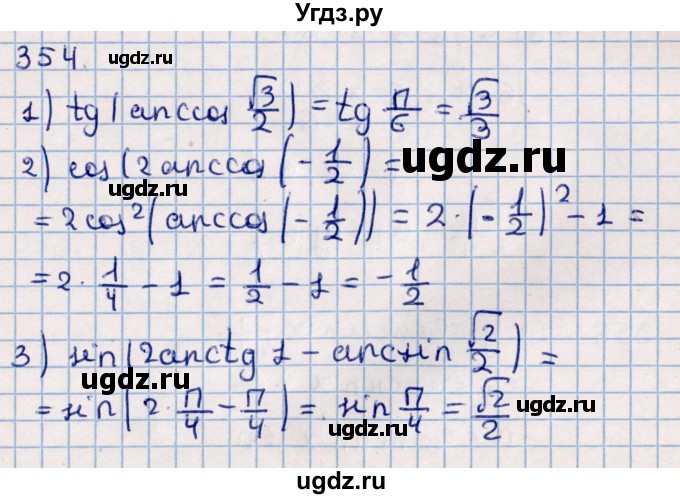 Угдз.ру
354. ugdz.ru
1) tg(arccos √3/2) = tg π/6 = √3/3
2) cos(2arccos(-1/2) = ugdz.ru
= 2cos²(arccos(-1/2)) = 2·(-1/2)² - 1 =
= 2·1/4 - 1 = 1/2 - 1 = -1/2
3) sin(2arctg 1 - arcsin √2/2) =
ugdz.ru
= sin(2·π/4 - π/4) = sin π/4 = √2/2
ugdz.ru
ugdz.ru
ugdz.ru